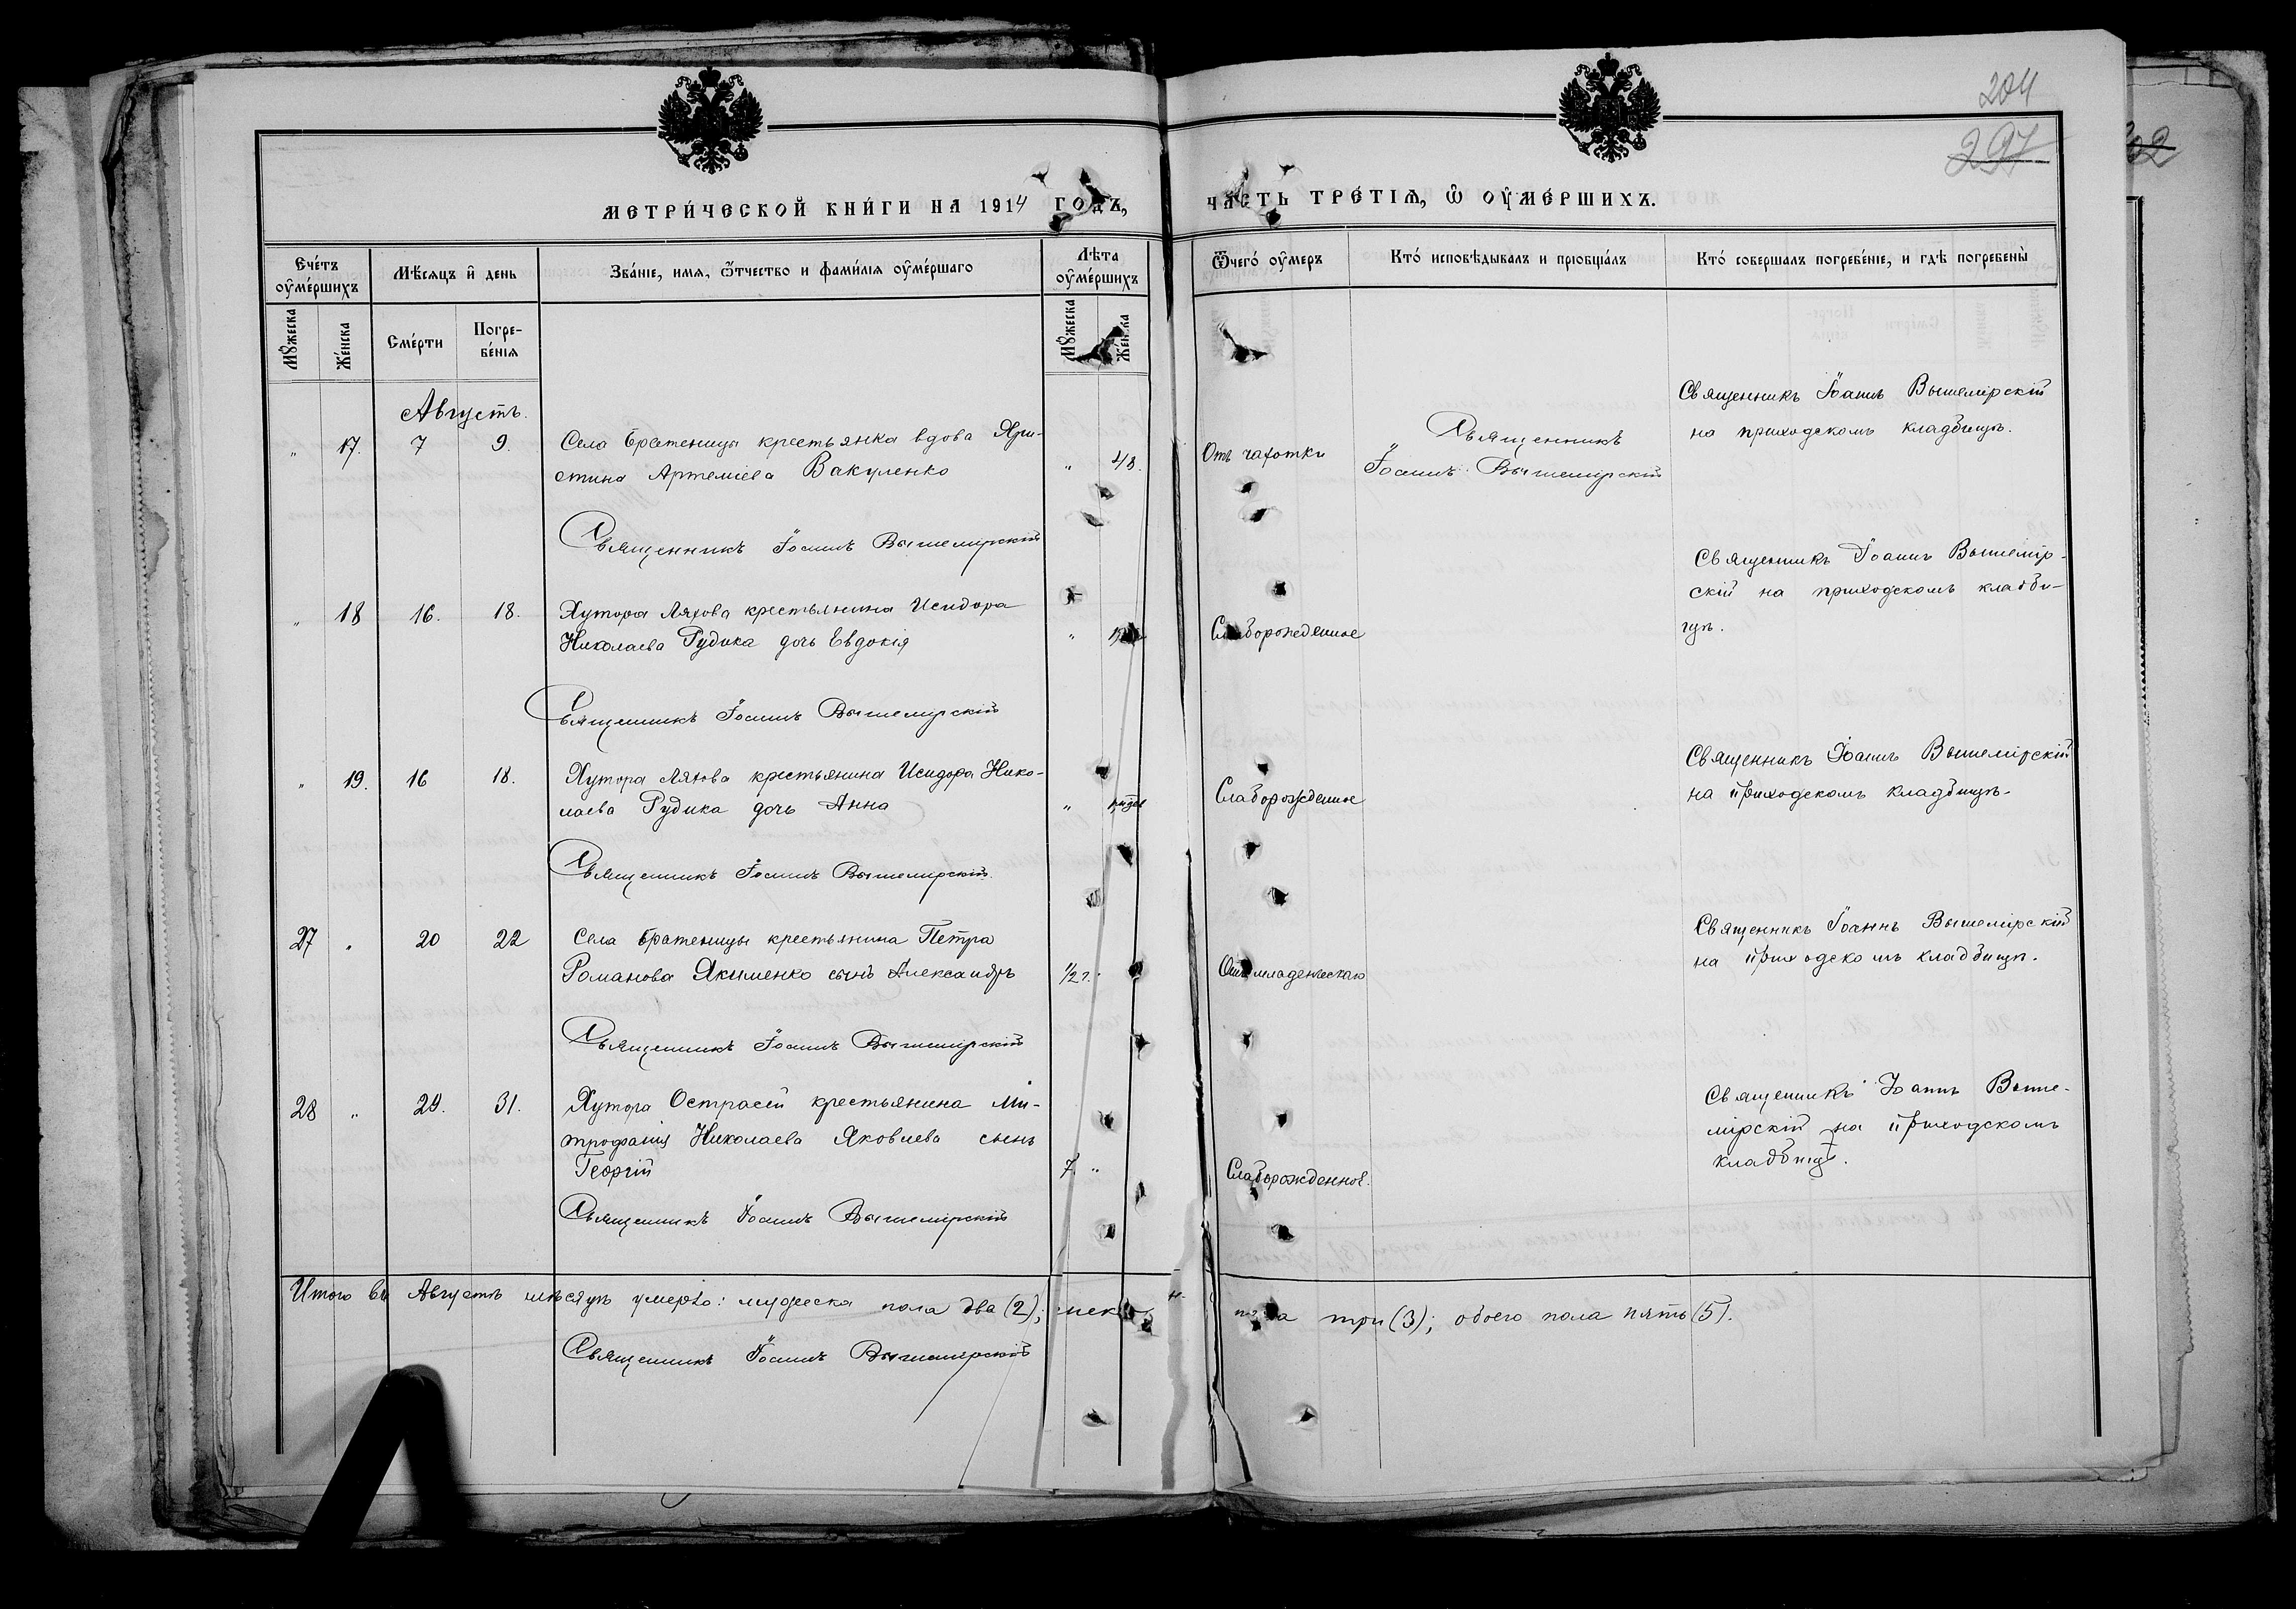 204
297
МЕТРИ́ЧЕСКОЙ КНИ́ГИ НА 1914 ГОДЪ,
ЧАСТЬ ТРЕ́ТІѦ, Ѡ҆ ОУ҆МЕ́РШИХЪ.
Сче́тъ оу҆ме́ршихъ
Мѣ́сѧцъ и҆ день
Зва́ніе, имѧ, ѻ҆́тчество и фами́ліѧ оу҆ме́ршаго
Лѣ́та оу҆ме́ршихъ
Ѿчегѡ̀ оу҆́меръ
Кто́ исповѣ́дывалъ и прїобща́лъ
Кто́ совершалъ погребе́ніе, и гдѣ̀ погребены̀
Мꙋ́жеска
Же́нска
Сме́рти
Погре-
бе́нія
Мꙋ́жеска
Же́нска
Августъ.
" 17. 7 9. Села Братеницы крестьянка вдова Хри-
стина Артеміева Вакуленко " 48.
Отъ чахотки
Священникъ
Іоаннъ Вышемірскій
Священникъ Іоаннъ Вышемірскій
на приходскомъ кладбищѣ.
Священникъ Іоаннъ Вышемірскій
" 18 16. 18. Хутора Ляхова крестьянина Исидора
Николаева Рудика дочь Евдокія "
Слаборожденное
Священникъ Іоаннъ Вышемір-
скій на приходскомъ кладби-
щѣ.
Священникъ Іоаннъ Вышемірскій
" 19. 16 18. Хутора Ляхова крестьянина Исидора Нико-
лаева Рудика дочь Анна "
Слаборожденное
Священникъ Іоаннъ Вышемірскій
на приходскомъ кладбищѣ.
Священникъ Іоаннъ Вышемірскій.
27 " 20 22 Села Братеницы крестьянина Петра
Романова Якименко сынъ Александръ 1/2 г.
Отъ младенческаго
Священникъ Іоаннъ Вышемірскій
на приходскомъ кладбищѣ.
Священникъ Іоаннъ Вышемірскій
28 " 29. 31. Хутора Острасей крестьянина Ми-
трофанія Николаева Яковлева сынъ
Георгій 7. "
Слаборожденное.
Священникъ Іоаннъ Выше-
мірскій на приходскомъ
кладбищѣ.
Священникъ Іоаннъ Вышемірскій
Итого въ Августѣ мѣсяцѣ умерло: мужеска пола два (2); женска пола три (3); обоего пола пять (5).
Священникъ Іоаннъ Вышемірскій